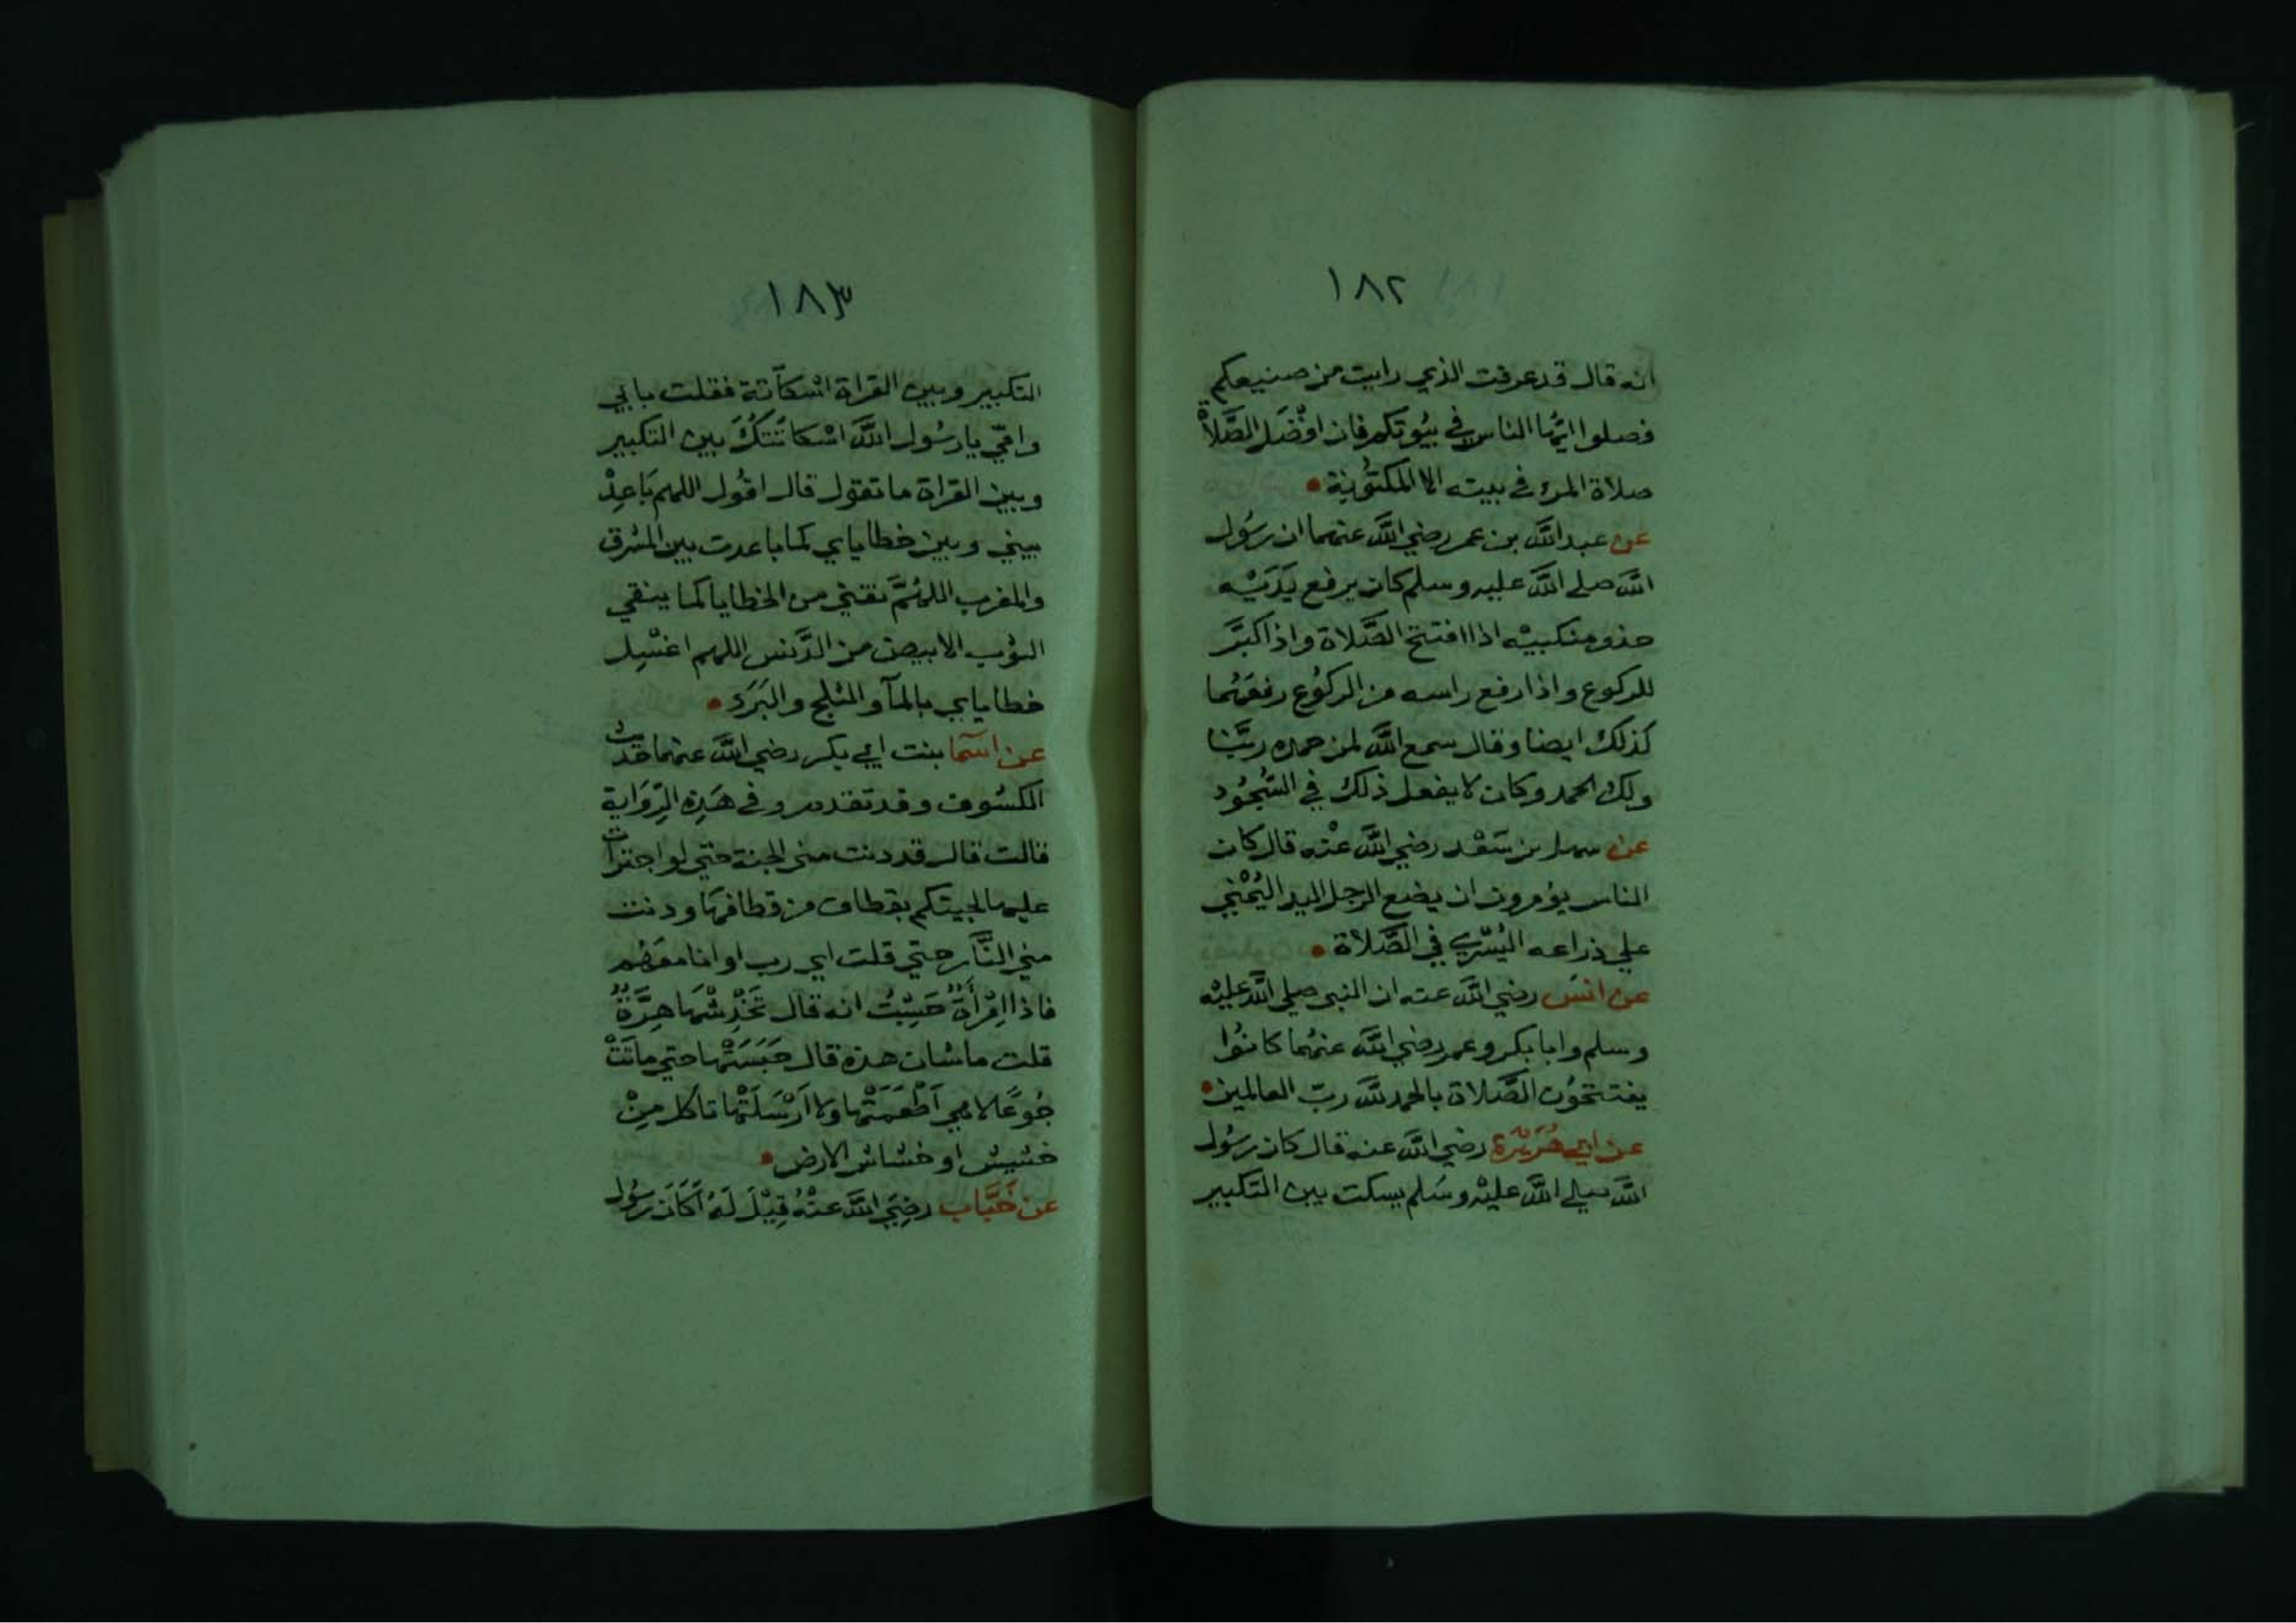 ١٨٢
انه قال قد عرفت الذي رايت من صنيعكم
فصلوا ايُّها الناس في بيُوتكم فان افْضَل الصَّلاة
صلاة المرء في بيته الا المكتُوبة
عن عبد الله بن عمر رضي الله عنهما ان رسُول
الله صلي الله عليه وسلم كان يرفع يَدَيْه
حذو منكبيْه اذا افتتح الصَّلاة واذا كبَّر
للركوع واذا رفع راسه من الركوُع رفعَهُما
كذلك ايضا وقال سمع الله لمن حمده ربَّنا
ولك الحمد وكان لا يفعل ذلك في السُّجُود
عن سهل بن سَعْد رضي الله عنْه قال كان
الناس يؤمرون ان يضع الرجل اليد اليُمْني
علي ذراعه اليُسْري في الصَّلاة
عن انسَ رضي الله عنه ان النبي صلي الله عليْه
وسلم وابا بكر وعمر رضي الله عنهُما كانُوا
يفتتحُون الصَّلاة بالحمد لله ربّ العالمين
عن ابي هُرَيْرَة رضي الله عنه قال كان رسُول
الله صلي الله عليْه وسَلم يسكت بين التكبير
١٨٣
التكبير وبين القراة اسْكاتة فقلت بابي
وامّي يا رسُول الله اسْكاتتكُ بين التكبير
وبين القراة ما تقول قال اقُول اللهم بَاعِدْ
بيني وبين خطاياي كما باعدت بين المشرق
والمغرب اللهُمَّ نقني من الخطايا كما ينقي
الثوب الابيض من الدَّنس اللهم اغسْل
خطاياي بالمآ والثلج والبَرَد
عن اسَما بنت ابي بكر رضي الله عنهما حَديث
الكسُوف وقد تقدم وفي هَذِه الرّوَاية
قالت قال قد دنت مني الجنة حتي لو اجترات
عليها لجيتكم بقطاف من قطافهَا ودنت
مني النَّار حتي قلت اي رب او انا معَهُم
فاذا امْرأَةٌ حَسِبْتُ انه قال تَخْدِشُهَا هِرَّةٌ
قلت ما شان هذه قال حَبَسَتْها حتي ماتَتْ
جُوعًا لا هي اَطْعَمَتْها ولا اَرْسَلَتْها تاكل مِنْ
خشيش او خشاش الارض
عن خَبَّاب رضِيَ الله عنْهُ قِيْلَ لَهُ اَكَانَ رسُول